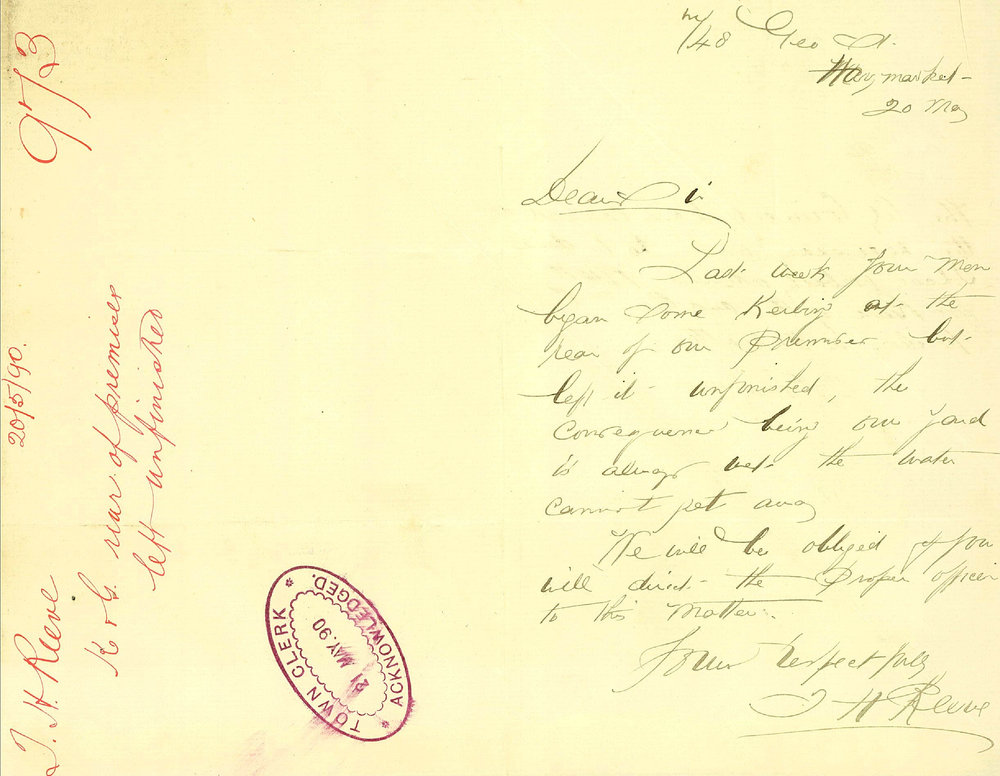 748 Geo St.
Haymarket
20 May
Dear Sir
Last week your men
began some Kerbing at the
rear of our Premises but
left it unfinished, the
consequence being our yard
is always wet the water
cannot get away
We will be obliged if you
will direct the Proper officer
to this matter.
Yours respectfully
T H Reeve
973
20/5/90.
T. H. Reeve
K & G. rear of premises
left unfinished
TOWN CLERK
21 MAY. 90
ACKNOWLEDGED.